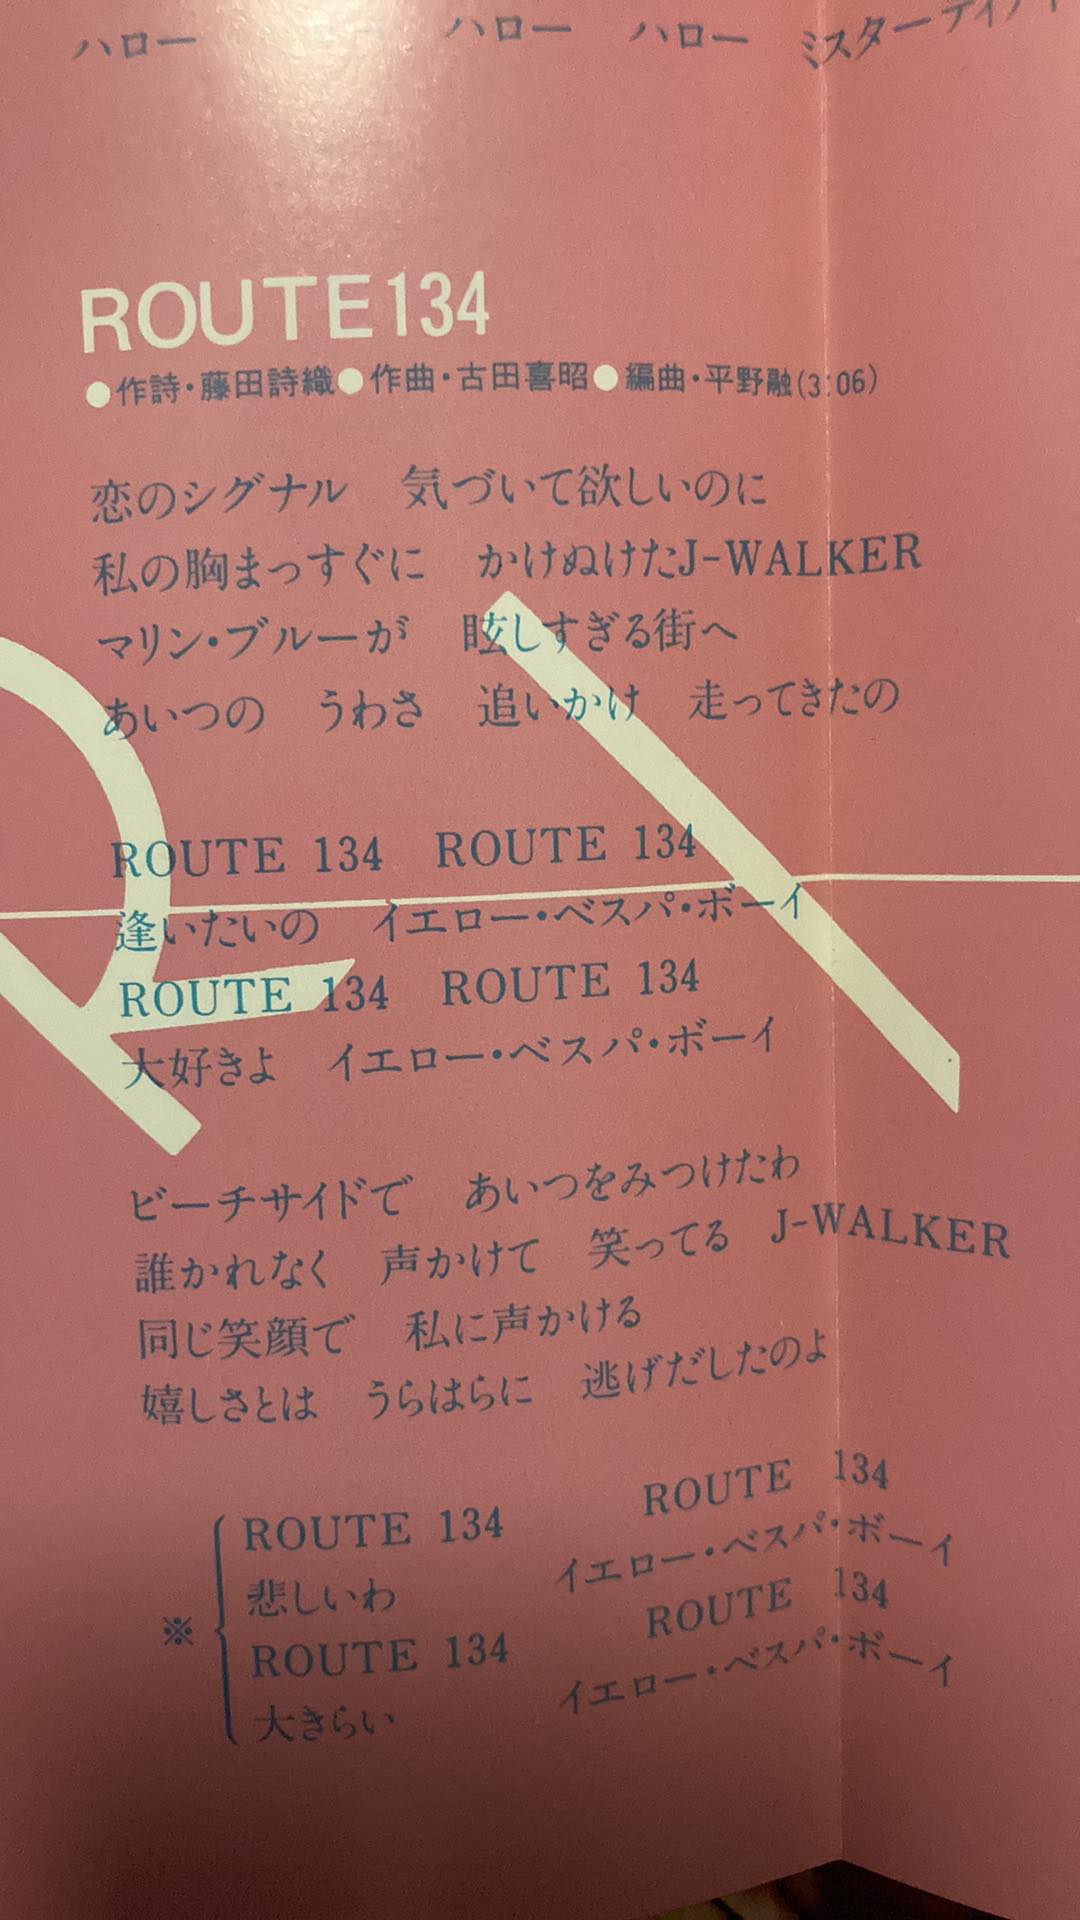 ハロー　　ハロー　ハロー　ミスター
ROUTE134
●作詩・藤田詩織●作曲・古田喜昭●編曲・平野融(3:06)
恋のシグナル　気づいて欲しいのに
私の胸まっすぐに　かけぬけたJ-WALKER
マリン・ブルーが　眩しすぎる街へ
あいつの　うわさ　追いかけ　走ってきたの
ROUTE 134　ROUTE 134
逢いたいの　イエロー・ベスパ・ボーイ
ROUTE 134　ROUTE 134
大好きよ　イエロー・ベスパ・ボーイ
ビーチサイドで　あいつをみつけたわ
誰かれなく　声かけて　笑ってる　J-WALKER
同じ笑顔で　私に声かける
嬉しさとは　うらはらに　逃げだしたのよ
ROUTE 134　ROUTE 134
悲しいわ　イエロー・ベスパ・ボーイ
※ ROUTE 134　ROUTE 134
大きらい　イエロー・ベスパ・ボーイ